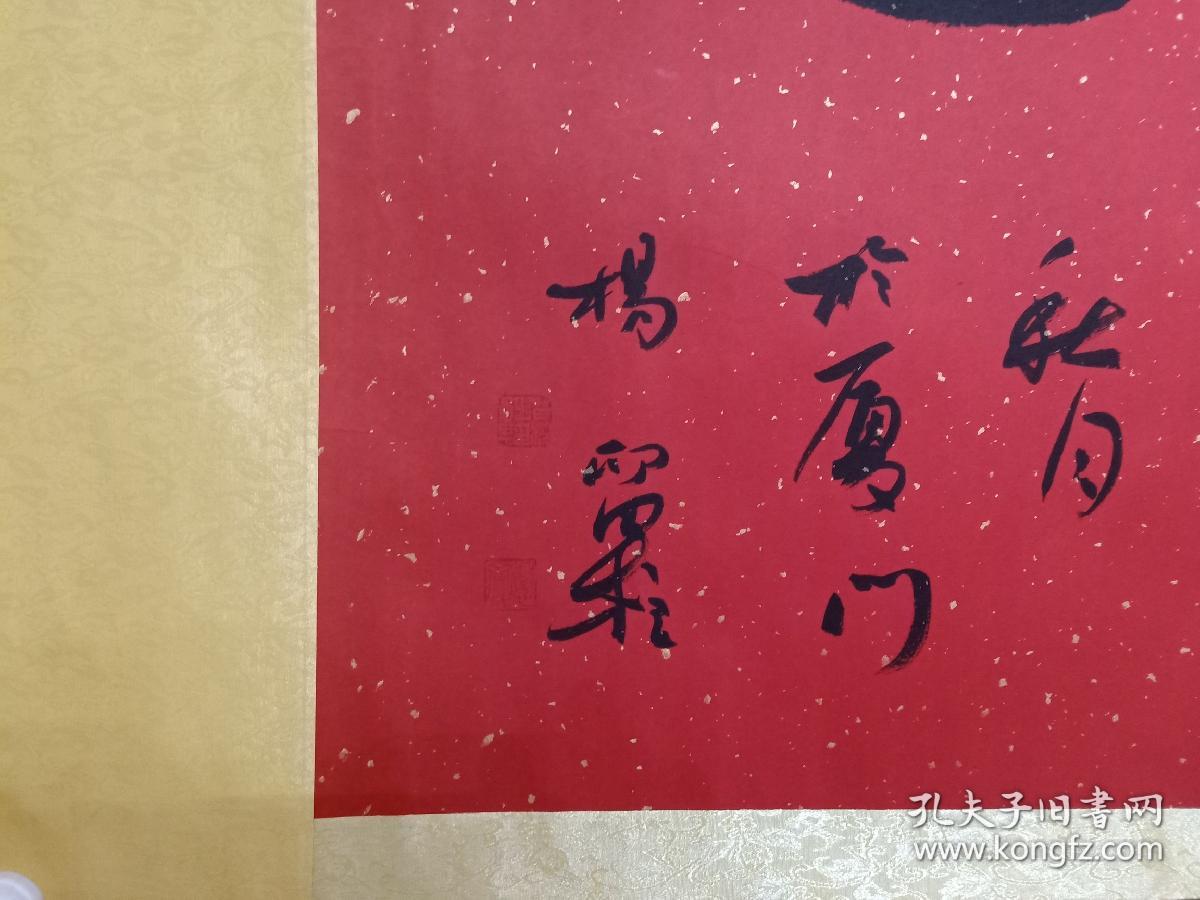 秋月
於厦門
楊
孔夫子旧書网
www.kongfz.com